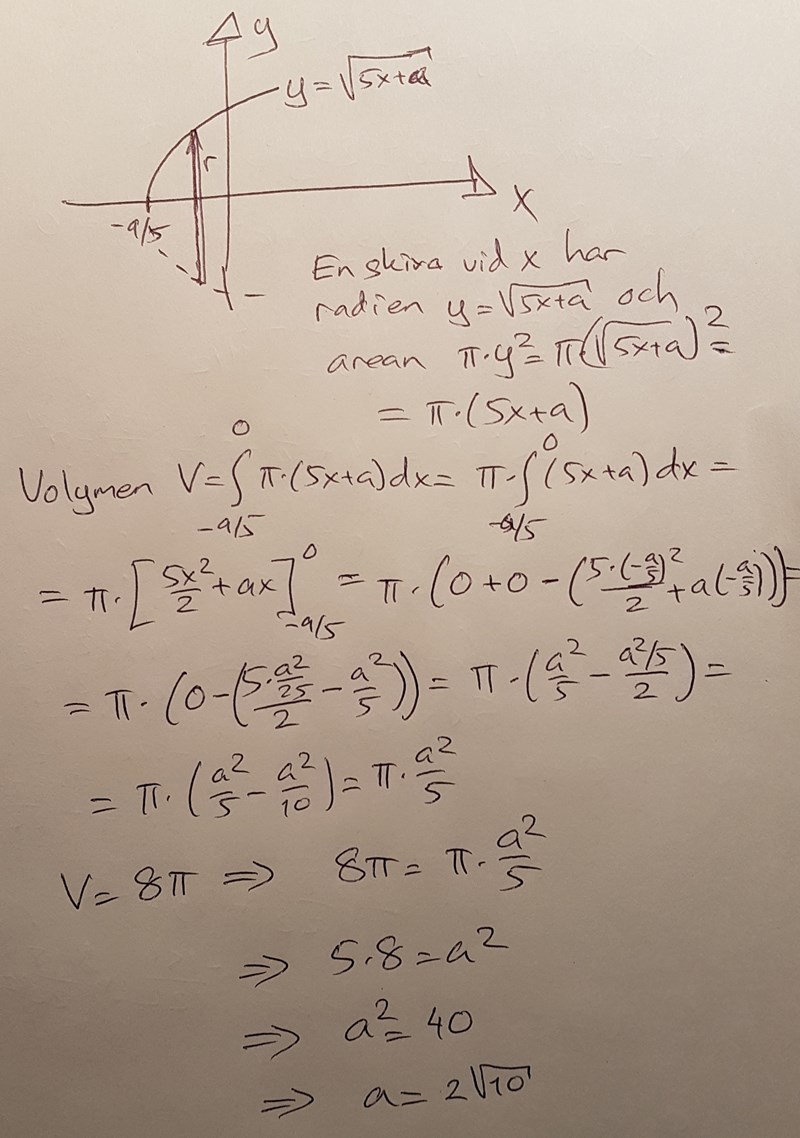 y
y = √(5x+a)
r
-a/5
x
En skiva vid x har
radien y = √(5x+a) och
arean π·y² = π(√(5x+a))² =
= π·(5x+a)
Volymen V = ∫_{-a/5}^{0} π·(5x+a)dx = π·∫_{-a/5}^{0} (5x+a)dx =
= π·[5x²/2 + ax]_{-a/5}^{0} = π·(0+0-(5·(-a/5)²/2 + a(-a/5))) =
= π·(0-((5·a²/25)/2 - a²/5)) = π·(a²/5 - (a²/5)/2) =
= π·(a²/5 - a²/10) = π·a²/5
V = 8π ⇒ 8π = π·a²/5
⇒ 5·8 = a²
⇒ a² = 40
⇒ a = 2√10